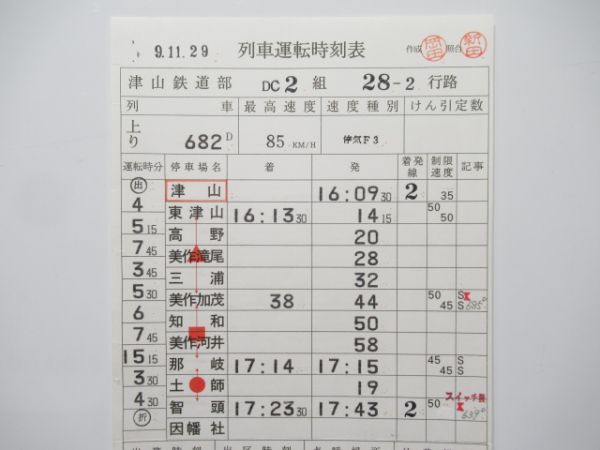 9.11.29 列車運転時刻表 作成 照合
津山鉄道部 DC 2 組 28-2 行路
列車 最高速度 速度種別 けん引定数
上り 682D 85KM/H 停気F3
運転時分 停車場名 着 発 着発線 制限速度 記事
出 津山 16:09 30 2 35
4 東津山 16:13 30 14 15 50 50
5 15 高野 20
7 45 美作滝尾 28
3 45 三浦 32
5 30 美作加茂 38 44 50 45 S S 685D
6 知和 50
7 45 美作河井 58
15 15 那岐 17:14 17:15 45 45 S S
3 30 土師 19
4 30 智頭 17:23 30 17:43 2 50 スイッチ
折 因幡社